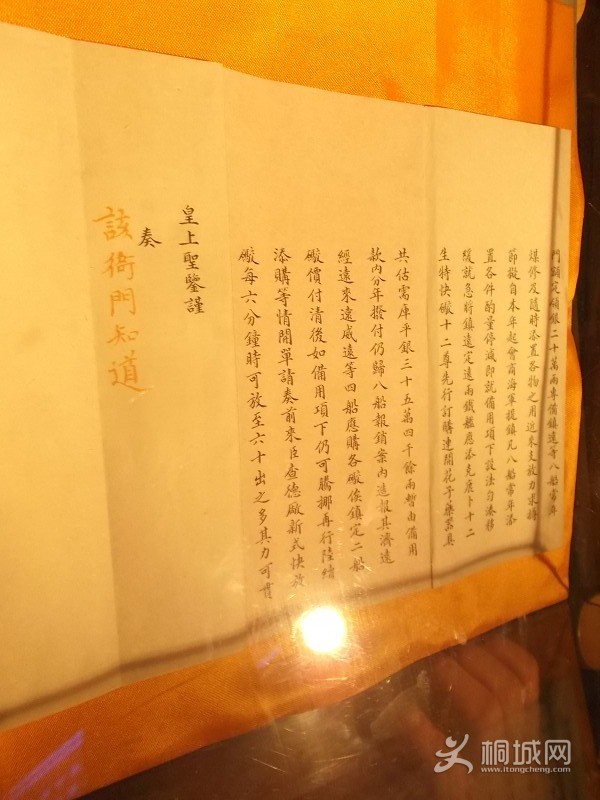 門額定領銀二十萬兩專備鎮遠等八船常年
煤修及隨時添置各物之用近來支放力求撙
節擬自本年起會商海軍提鎮凡八船常年添
置各件酌量停減即就備用項下設法勻湊移
緩就急將鎮遠定遠兩鐵艦應添克鹿卜十二
生特快礮十二尊先行訂購連開花子藥器具
共估需庫平銀三十五萬四千餘兩暫由備用
款內分年撥付仍歸八船報銷案內造報其濟遠
經遠來遠威遠等四船應購各礮俟鎮定二船
礮價付清後如備用項下仍可騰挪再行陸續
添購等情開單請奏前來臣查德廠新式快放
礮每六分鐘時可放至六十出之多其力可貫
皇上聖鑒謹
奏
該衙門知道
桐城网
www.itongcheng.com